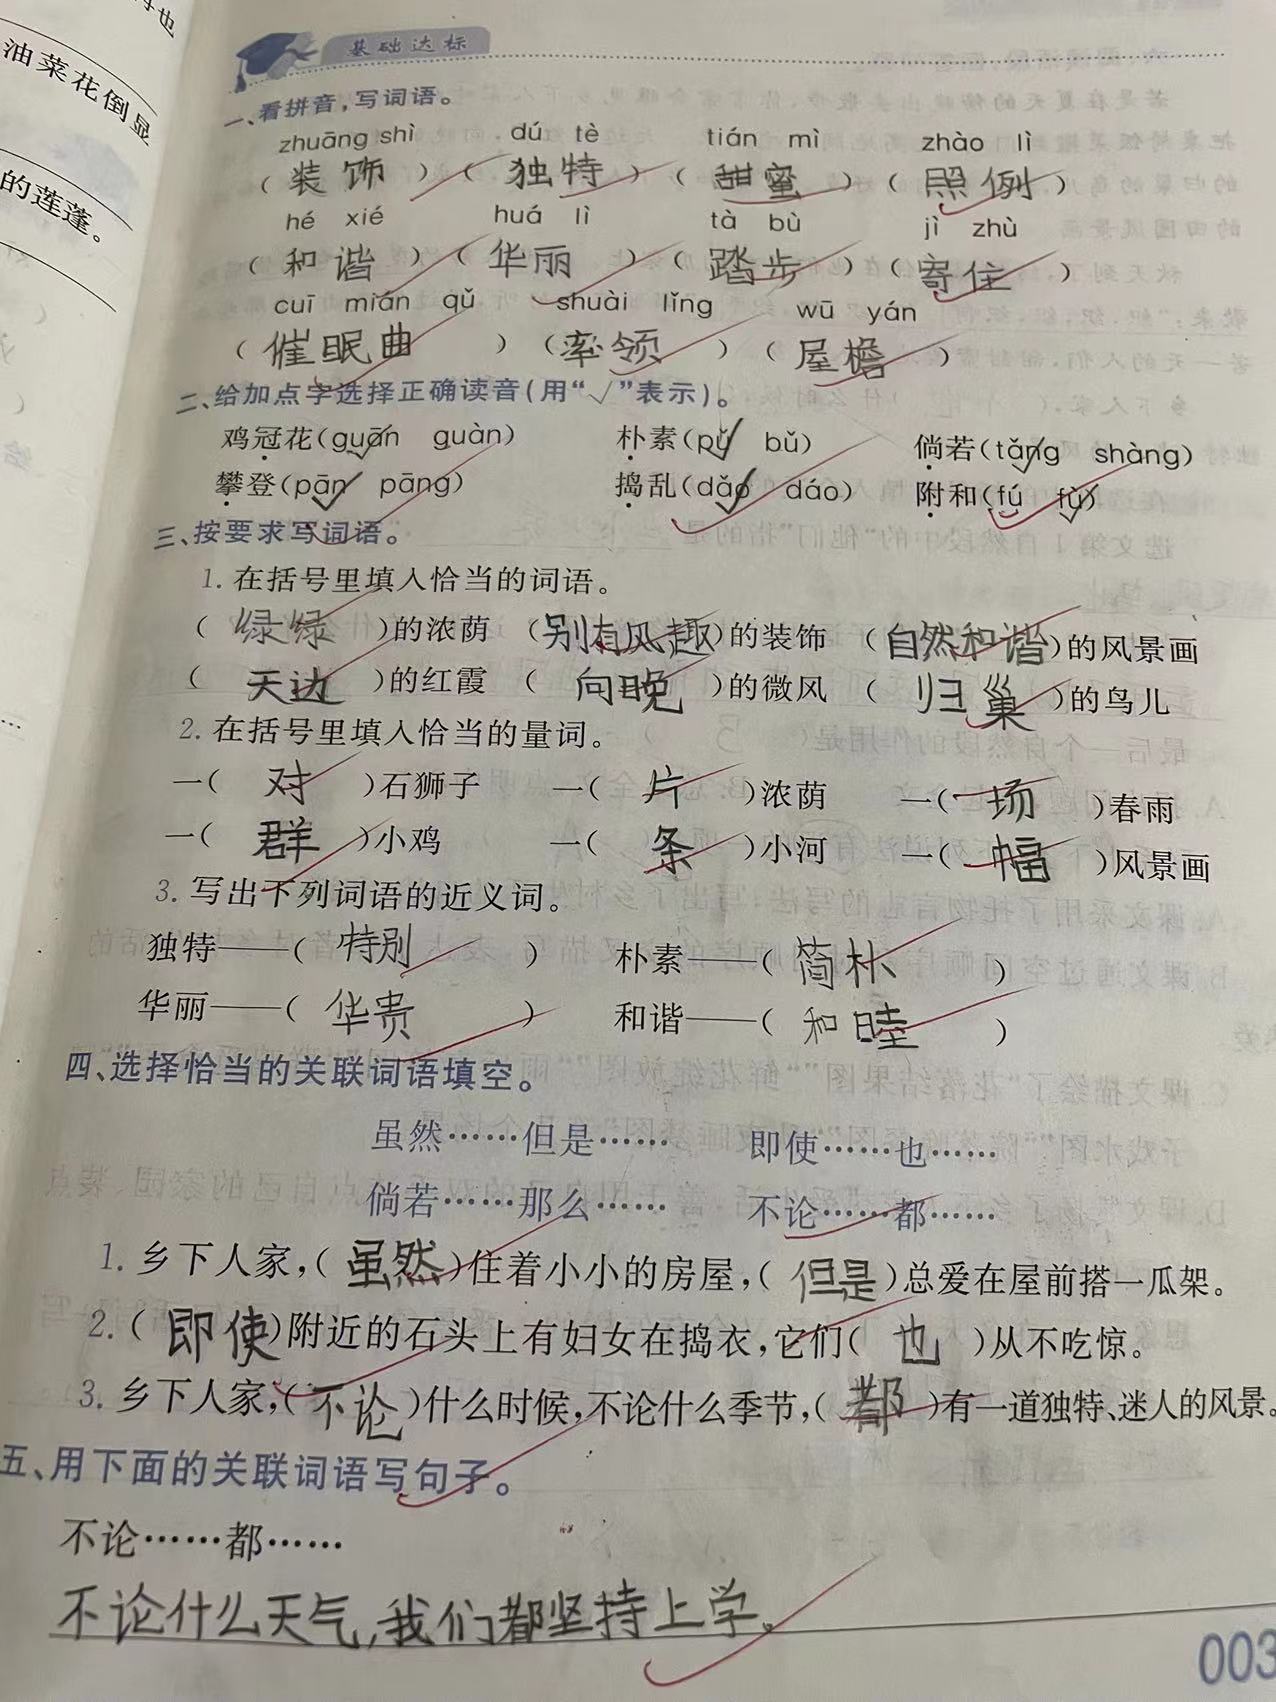 油菜花倒显
的莲蓬。
基础达标
一、看拼音,写词语。
zhuāng shì dú tè tián mì zhào lì
( 装饰 ) ( 独特 ) ( 甜蜜 ) ( 照例 )
hé xié huá lì tà bù jì zhù
( 和谐 ) ( 华丽 ) ( 踏步 ) ( 寄住 )
cuī mián qǔ shuài lǐng wū yán
( 催眠曲 ) ( 率领 ) ( 屋檐 )
二、给加点字选择正确读音(用“√”表示)。
鸡冠花(guān√ guàn) 朴素(pǔ√ bǔ) 倘若(tǎng√ shàng)
攀登(pān√ pāng) 捣乱(dǎo√ dáo) 附和(fú fù√)
三、按要求写词语。
1. 在括号里填入恰当的词语。
( 绿绿 )的浓荫 (别有风趣)的装饰 (自然和谐)的风景画
( 天边 )的红霞 ( 向晚 )的微风 ( 归巢 )的鸟儿
2. 在括号里填入恰当的量词。
一( 对 )石狮子 一( 片 )浓荫 一( 场 )春雨
一( 群 )小鸡 一( 条 )小河 一( 幅 )风景画
3. 写出下列词语的近义词。
独特——( 特别 ) 朴素——( 简朴 )
华丽——( 华贵 ) 和谐——( 和睦 )
四、选择恰当的关联词语填空。
虽然……但是…… 即使……也……
倘若……那么…… 不论……都……
1. 乡下人家,( 虽然 )住着小小的房屋,( 但是 )总爱在屋前搭一瓜架。
2. ( 即使 )附近的石头上有妇女在捣衣,它们( 也 )从不吃惊。
3. 乡下人家,( 不论 )什么时候,不论什么季节,( 都 )有一道独特、迷人的风景。
五、用下面的关联词语写句子。
不论……都……
不论什么天气,我们都坚持上学。
003